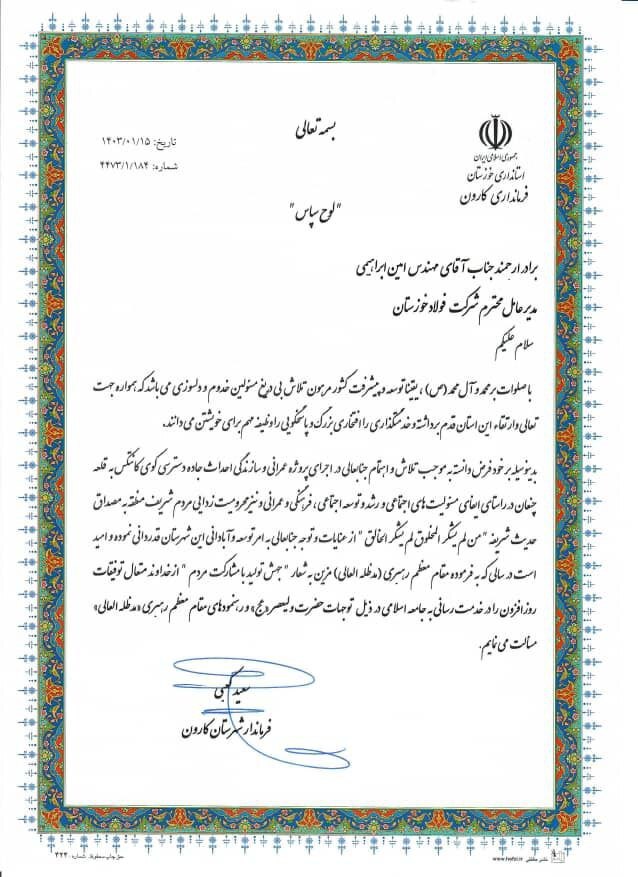 بسمه تعالی
جمهوری اسلامی ایران
استانداری خوزستان
فرمانداری کارون
تاریخ: ۱۴۰۳/۰۱/۱۵
شماره: ۴۴۷۳/۱/۱۸۴
"لوح سپاس"
برادر ارجمند جناب آقای مهندس امین ابراهیمی
مدیرعامل محترم شرکت فولاد خوزستان
سلام علیکم
با صلوات بر محمد و آل محمد (ص) ، یقینا توسعه و پیشرفت کشور مرهون تلاش بی دریغ مسئولین خدوم و دلسوزی می باشد که همواره جهت
تعالی و ارتقاء این استان قدم برداشته و خدمتگذاری را افتخاری بزرگ و پاسخگویی را وظیفه مهم برای خویشتن می دانند.
بدینوسیله بر خود فرض دانسته به موجب تلاش و اهتمام جنابعالی در اجرای پروژه عمرانی و سازندگی احداث جاده دسترسی کوی کانتکس به قلعه
چنعان در راستای ایفای مسئولیت های اجتماعی و رشد و توسعه اجتماعی، فرهنگی و عمرانی و نیز محرومیت زدایی مردم شریف منطقه به مصداق
حدیث شریفه "من لم یشکر المخلوق لم یشکر الخالق" از عنایات و توجه جنابعالی به امر توسعه و آبادانی این شهرستان قدردانی نموده و امید
است در سالی که به فرموده مقام معظم رهبری (مدظله العالی) مزین به شعار "جهش تولید با مشارکت مردم" از خداوند متعال توفیقات
روزافزون را در خدمت رسانی به جامعه اسلامی در ذیل توجهات حضرت ولیعصر «عج» و رهنمودهای مقام معظم رهبری «مدظله العالی»
مسألت می نمایم.
سعید کعبی
فرماندار شهرستان کارون
حق چاپ محفوظ. شماره: ۴۲۴
نشر حافظی www.hafzi.ir